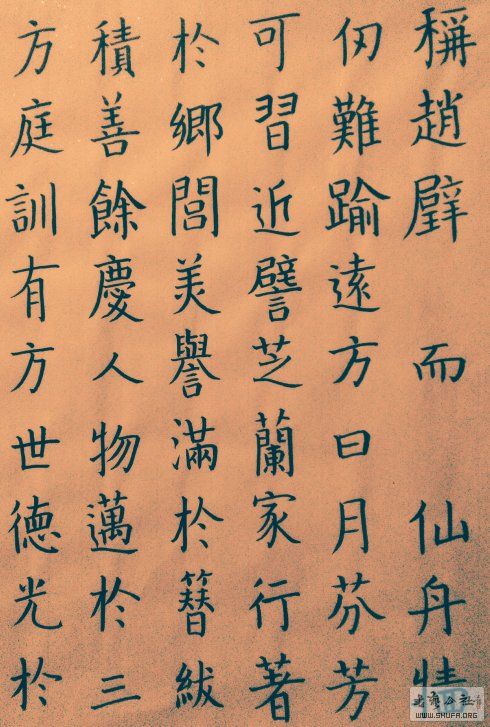 稱趙璧 而 仙舟情
仞難踰遠方日月芬芳
可習近譬芝蘭家行著
於鄉閭美譽滿於簪紱
積善餘慶人物邁於三
方庭訓有方世德光於
WWW.SHUFA.ORG